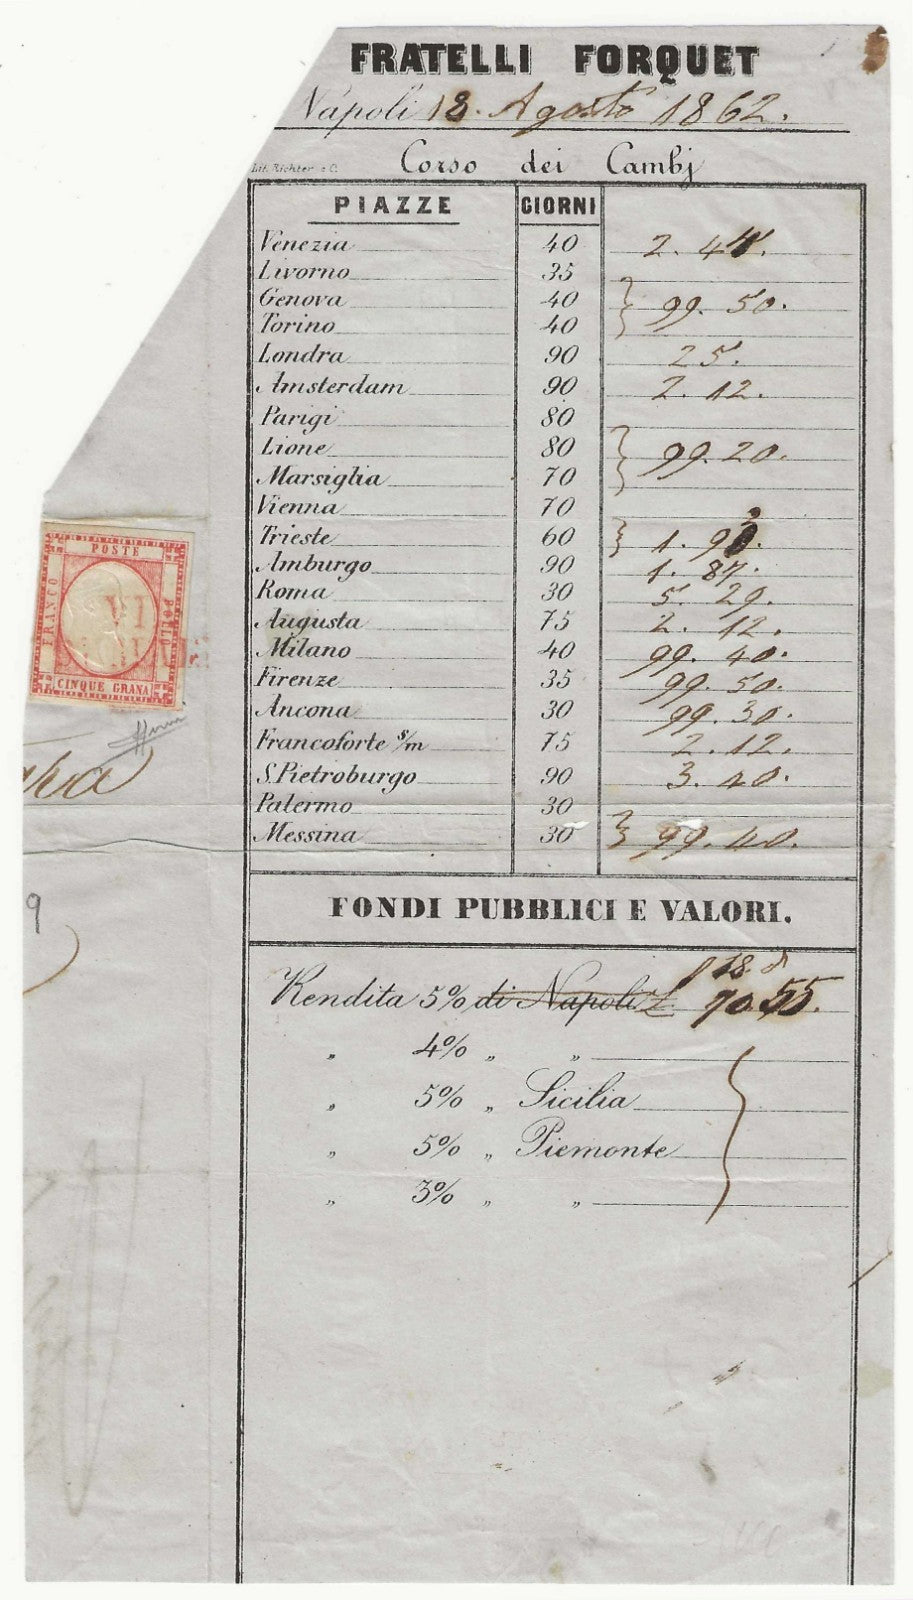 FRATELLI FORQUET
Napoli 18. Agosto 1862.
Lit. Richter e C.
Corso dei Cambj
PIAZZE GIORNI
Venezia 40 2. 44.
Livorno 35
Genova 40 99. 50.
Torino 40
Londra 90 25.
Amsterdam 90 2. 12.
Parigi 80
Lione 80 99. 20.
Marsiglia 70
Vienna 70
Trieste 60 1. 90.
Amburgo 90 1. 87.
Roma 30 5. 29.
Augusta 75 2. 12.
Milano 40 99. 40.
Firenze 35 99. 50.
Ancona 30 99. 30.
Francoforte s/m 75 2. 12.
S. Pietroburgo 90 3. 40.
Palermo 30
Messina 30 99. 40.
FONDI PUBBLICI E VALORI.
18.
Rendita 5% di Napoli 70.55.
„ 4% „ „
„ 5% „ Sicilia
„ 5% „ Piemonte
„ 3% „ „
POSTE
FRANCO
BOLLO
CINQUE GRANA
9